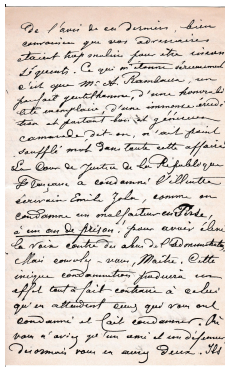 De l'avis de ces derniers - bien
convaincu que vos adversaires
étaient trop malins pour être incon
séquents. Ce qui m'étonne sérieusement
c'est que Mr A. Rambaud, un
parfait gentilhomme, d'une honorabi
lité exemplaire, d'une immense érudi
tion et partant bon et généreux
camarade dit-on, n'ait point
soufflé mot dans toute cette affaire
La Cour de Justice de la République
Française a condamné l'illustre
écrivain Emile Zola, comme on
condamne un malfaiteur en
à un an de prison, pour avoir élevé
la voix contre du abus de l'
Mais courage, vous, Maître. Cette
inique condamnation produira un
effet tout à fait contraire à celui
qu'en attendent ceux qui vous ont
condamné et fait condamner. Si
vous n'aviez qu'un ami et un défenseur
désormais vous en aurez deux. Ils